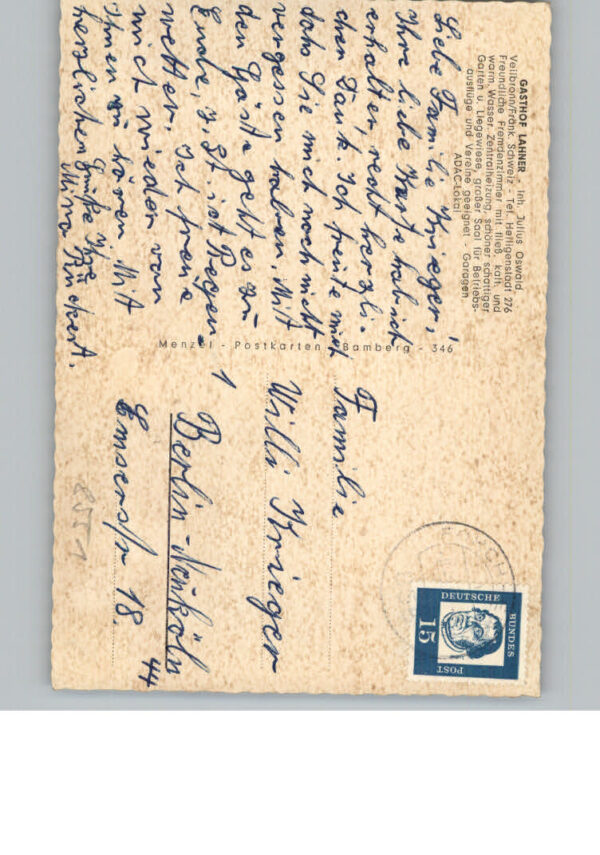 GASTHOF LAHNER - Inh. Julius Oswald,
Veilbronn/Fränk. Schweiz - Tel. Heiligenstadt 276
Freundliche Fremdenzimmer mit fließ. kalt. und
warm. Wasser, Zentralheizung, schöner schattiger
Garten u. Liegewiese, großer Saal für Betriebs-
ausflüge und Vereine geeignet - Garagen
ADAC-Lokal
Liebe Familie Krieger,
Ihre liebe Karte hab ich
erhalten, recht herzli-
chen Dank. Ich freute mich
daß Sie mich noch nicht
vergessen haben. Mit
den Gäste geht es zu
Ende, z. Zt. ist Regen-
wetter. Ich freue
mich wieder von
Ihnen zu hören. Mit
herzlichen Grüße Ihre
Mina
Menzel - Postkarten - Bamberg - 346
Familie
Willi Krieger
1
Berlin-Neuköln
44
Emserstr 18.
DEUTSCHE
BUNDES
POST
15